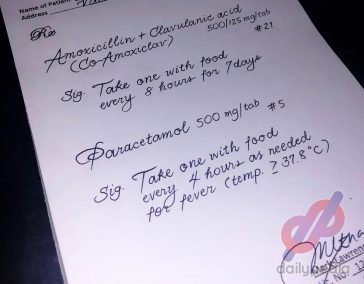 Name of Patient
Address
Rx
Amoxicillin + Clavulanic acid
(Co-Amoxiclav) 500/125 mg/tab
#21
Sig. Take one with food
every 8 hours for 7 days
Paracetamol 500 mg/tab #5
Sig. Take one with food
every 4 hours as needed
for fever (temp. ≥ 37.8°C)